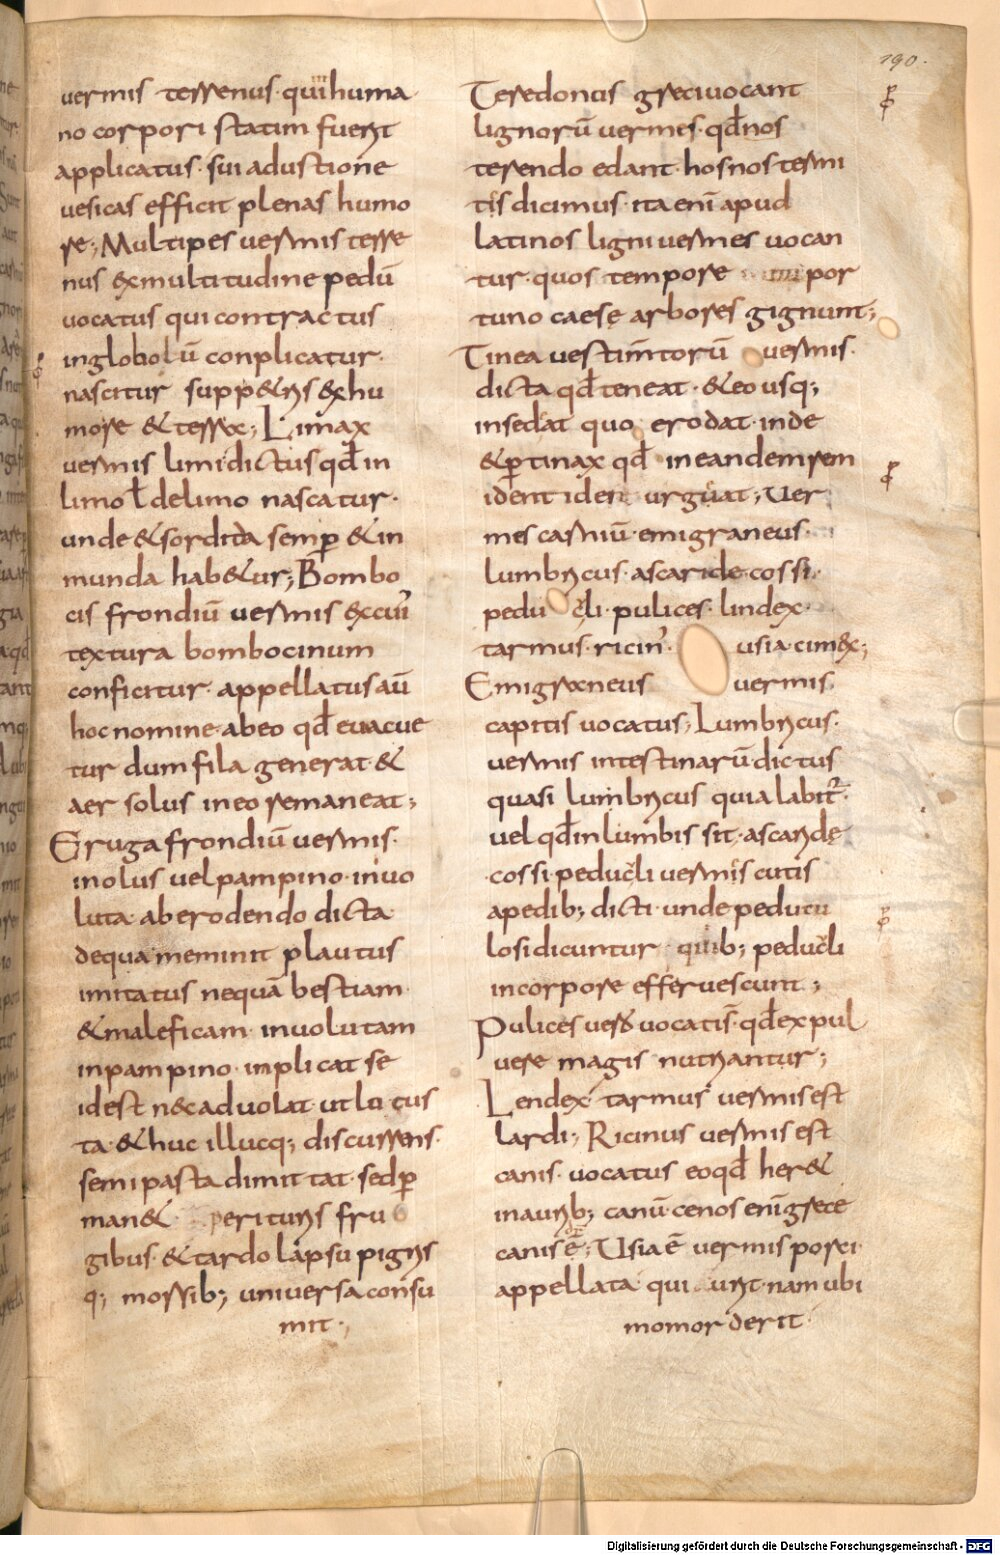 190.
vermis terrenus· qui huma
no corpori statim fuerit
applicatus· sui adustione
vesicas efficit plenas humo
re; Multipes vermis terre
nus ex multitudine pedū
vocatus qui contractus
inglobolū conplicatur·
nascitur supp&ris &xhu
more & terræ; Limax
vermis limi dictus qđ in
limo ł de limo nascatur·
unde & sordida semp̄ & in
munda hab&ur; Bombo
cis frondiū vermis excuī
textura bombocinum
conficitur· appellatus aū
hoc nomine ab eo qđ evacue
tur dum fila generat &
aer solus in eo remaneat;
Eruga frondiū vermis·
in olus vel pampino· invo
luta ab erodendo dicta
de qua meminit plautus
imitatus nequā bestiam
& maleficam involutam
in pampino· inplicat se
id est n&c advolat ut locus
ta & huc illucq; discurrens·
semipasta dimittat sed p̄
man& perituris fru
gibus· & tardo lapsu pigris
q; morsib; universa consu
mit·
Teredonas greci vocant
lignorū vermes· qđ nos
terendo edant· hos nos termi
tes dicimus· ita enī apud
latinos ligni vermes vocan
tur· quos tempore por
tuno caesę arbores gignunt;
Tinea vestim̄torū vermis·
dicta qđ teneat· & eo usq;
insedat quo erodat· inde
& p̄tinax qđ in eandem rem
identiden urguat; Ver
mes carniū· emigraneus·
lumbricus· ascaride· cossi·
peducli· pulices· lindex·
tarmus· ricin'· usia· cimex;
Emigraneus vermis
capitis vocatus; Lumbricus·
vermis intestinarū dictus
quasi lumbricus quia labit̄·
vel qđ in lumbis sit· ascaridę
cossi· peducli vermis cutis
a pedib; dicti· unde peducu
losi dicuntur quib; peducli
in corpore effervescunt;
Pulices verō vocatis· qđ ex pul
vere magis nutriantur;
Lendex tarmus vermis est
lardi; Ricinus vermis est
canis· vocatus eo qđ her&
in aurib; canū· cenos enī grece
canis ē; Usia ē vermis porci·
appellata qui urit· nam ubi
momorderit
Digitalisierung gefördert durch die Deutsche Forschungsgemeinschaft - DFG